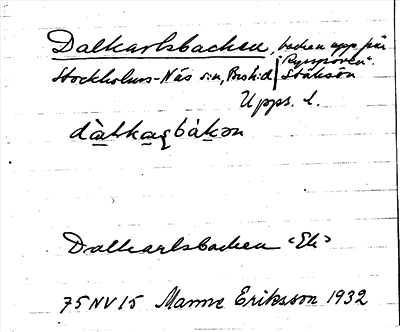 Dalkarlsbacken, backen upp från
"Rysgraven"
Stockholms-Näs sn, Bro hd Stäksön
Upps. l.
Dalkarlsbacken "Ek"
75NV15 Manne Eriksson 1932